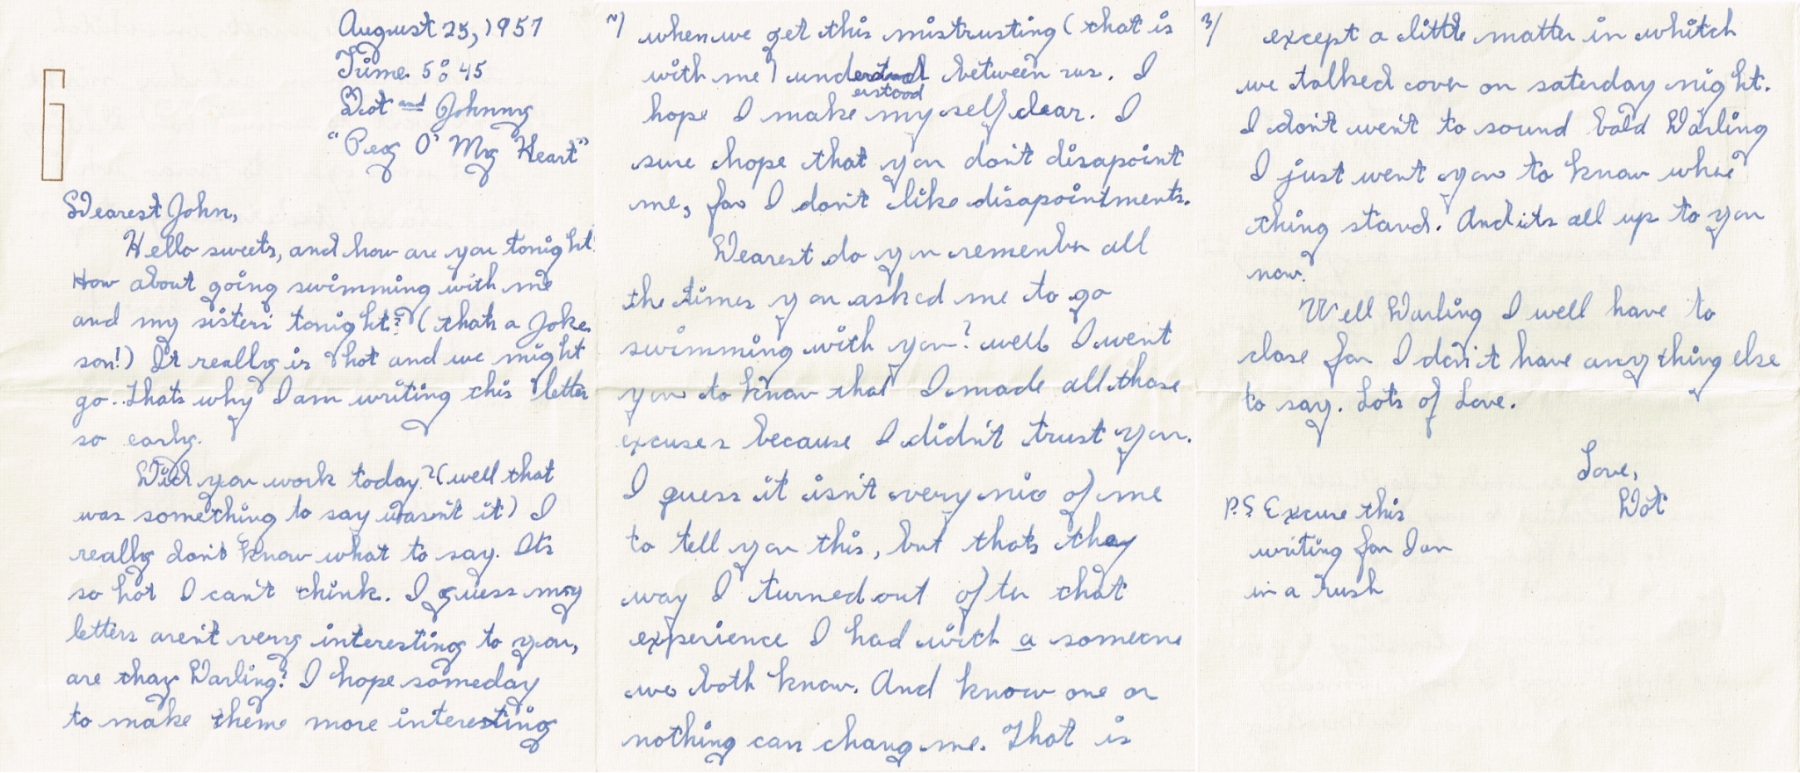 August 25, 1957
Time 5:45
Dot and Johnny
"Peg O' My Heart"
Dearest John,
Hello sweets, and how are you tonight.
How about going swimming with me
and my sisters tonight? (thats a Joke
son!) It really is hot and we might
go. Thats why I am writing this letter
so early.
Did you work today? (well that
was something to say wasen't it) I
really don't know what to say. Its
so hot I can't think. I guess my
letters aren't very interesting to you,
are thay Darling? I hope someday
to make theme more interesting
2/
when we get this mistrusting (that is
with me) understood between us. I
erstood
hope I make my self clear. I
sure hope that you don't disapoint
me, for I don't like disapointments.
Dearest do you remember all
the times you asked me to go
swimming with you? well I went
you to know that I made all those
excuses because I didn't trust you.
I guess it isn't very nice of me
to tell you this, but thats they
way I turned out after that
experience I had with a someone
we both know. And know one or
nothing can chang me. That is
3/
except a little matter in whitch
we talked over on saterday night.
I don't went to sound bold Darling
I just went you to know whie
thing stand. And its all up to you
now.
Well Darling I well have to
close for I don't have any thing else
to say. Lots of Love.
Love,
Dot
P.S Excuse this
writing for I an
in a rush